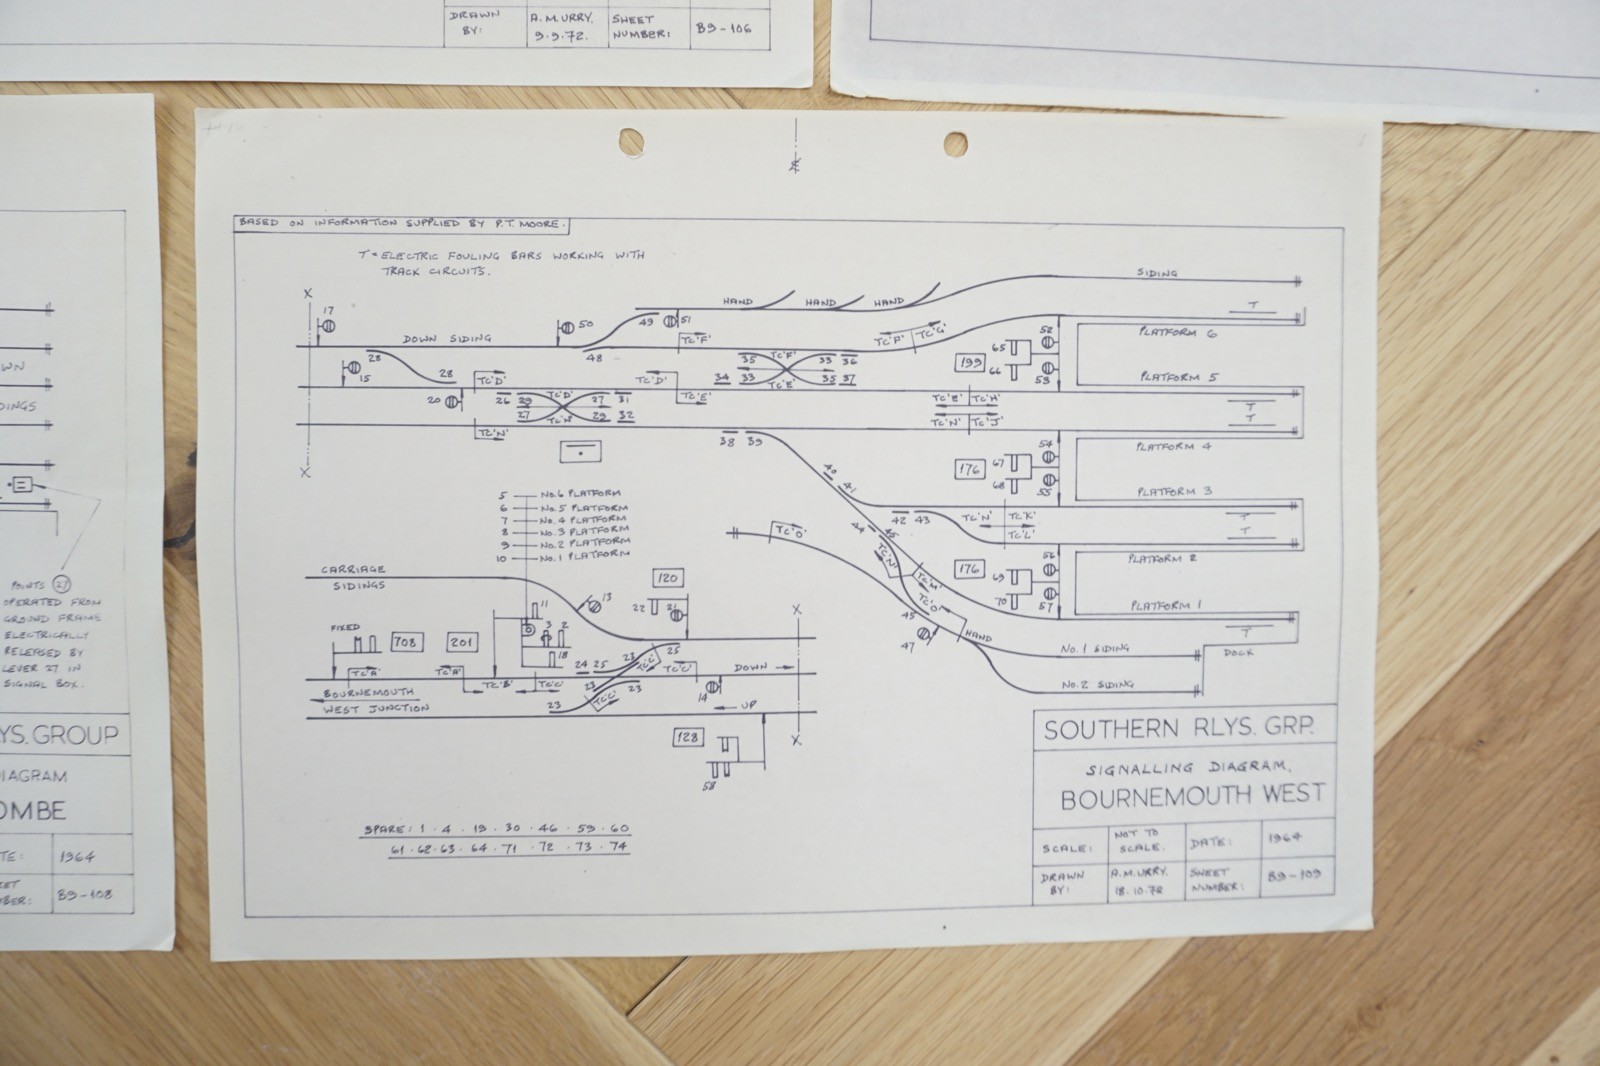 DRAWN BY:
A.M.URRY. 9.9.72.
SHEET NUMBER:
B9-106
BASED ON INFORMATION SUPPLIED BY P.T. MOORE.
T = ELECTRIC FOULING BARS WORKING WITH
TRACK CIRCUITS.
X
17
50
49
51
HAND
HAND
HAND
SIDING
T
DOWN SIDING
TC'F'
TC'F'
TC'G'
52
PLATFORM 6
28
48
35
TC'F'
33
36
65
199
66
53
15
28
TC'D'
TC'D'
34
33
TC'E'
35
37
PLATFORM 5
20
26
29
TC'D'
27
31
TC'E'
TC'E'
TC'H'
T
27
TC'N'
29
32
TC'N'
TC'J'
T
TC'N'
38
39
54
PLATFORM 4
X
40
41
176
67
68
55
PLATFORM 3
5 No.6 PLATFORM
6 No.5 PLATFORM
7 No.4 PLATFORM
8 No.3 PLATFORM
9 No.2 PLATFORM
10 No.1 PLATFORM
42
43
TC'N'
TC'K'
T
TC'L'
T
44
45
TC'O'
TC'N'
56
PLATFORM 2
CARRIAGE
SIDINGS
120
TC'M'
176
69
70
57
PLATFORM 1
13
22
21
X
TC'O'
45
T
11
FIXED
708
201
3
2
18
47
HAND
No.1 SIDING
DOCK
24
25
23
25
TC'C'
TC'A'
TC'A'
TC'B'
TC'C'
TC'C'
DOWN
No.2 SIDING
BOURNEMOUTH
WEST JUNCTION
23
23
23
TC'C'
14
UP
128
X
58
SPARE: 1 . 4 . 19 . 30 . 46 . 59 . 60
61 . 62 . 63 . 64 . 71 . 72 . 73 . 74
SOUTHERN RLYS. GRP.
SIGNALLING DIAGRAM,
BOURNEMOUTH WEST
SCALE:
NOT TO SCALE.
DATE:
1964
DRAWN BY:
A.M.URRY. 18.10.72
SHEET NUMBER:
B9-109
WN
DINGS
POINTS 27
OPERATED FROM
GROUND FRAME
ELECTRICALLY
RELEASED BY
LEVER 27 IN
SIGNAL BOX.
YS. GROUP
DIAGRAM
OMBE
TE:
1964
EET
BER:
B9-108